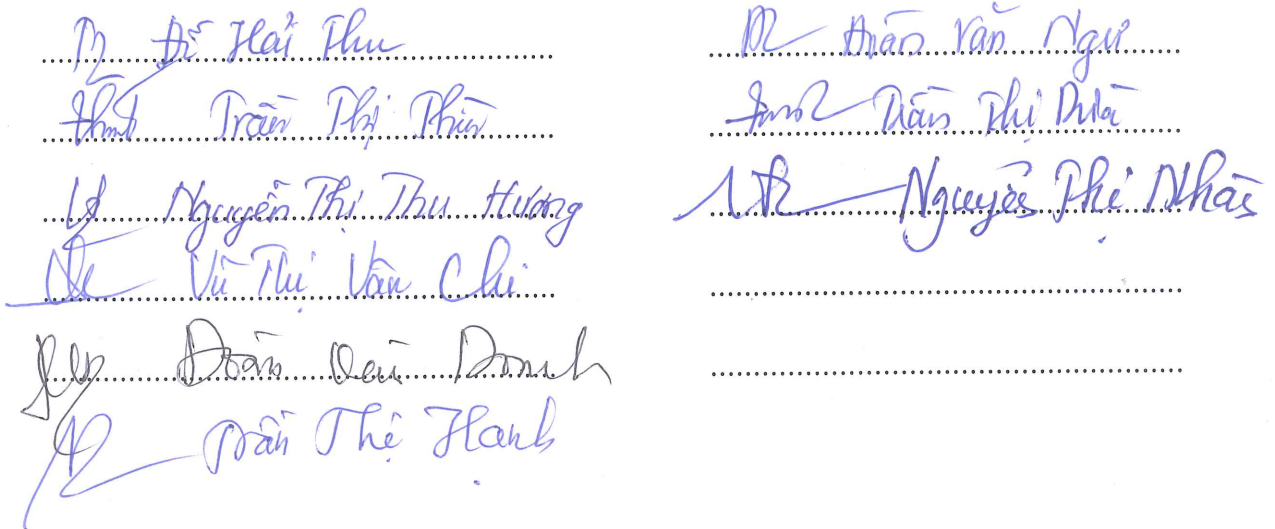 Đỗ Hải Thu
Trần Thị Thìn
Nguyễn Thị Thu Hương
Vũ Thị Vân Chi
Đoàn Danh
Trần Thị Hạnh
Trần Văn Ngư
Trần Thị
Nguyễn Thị Nhàn